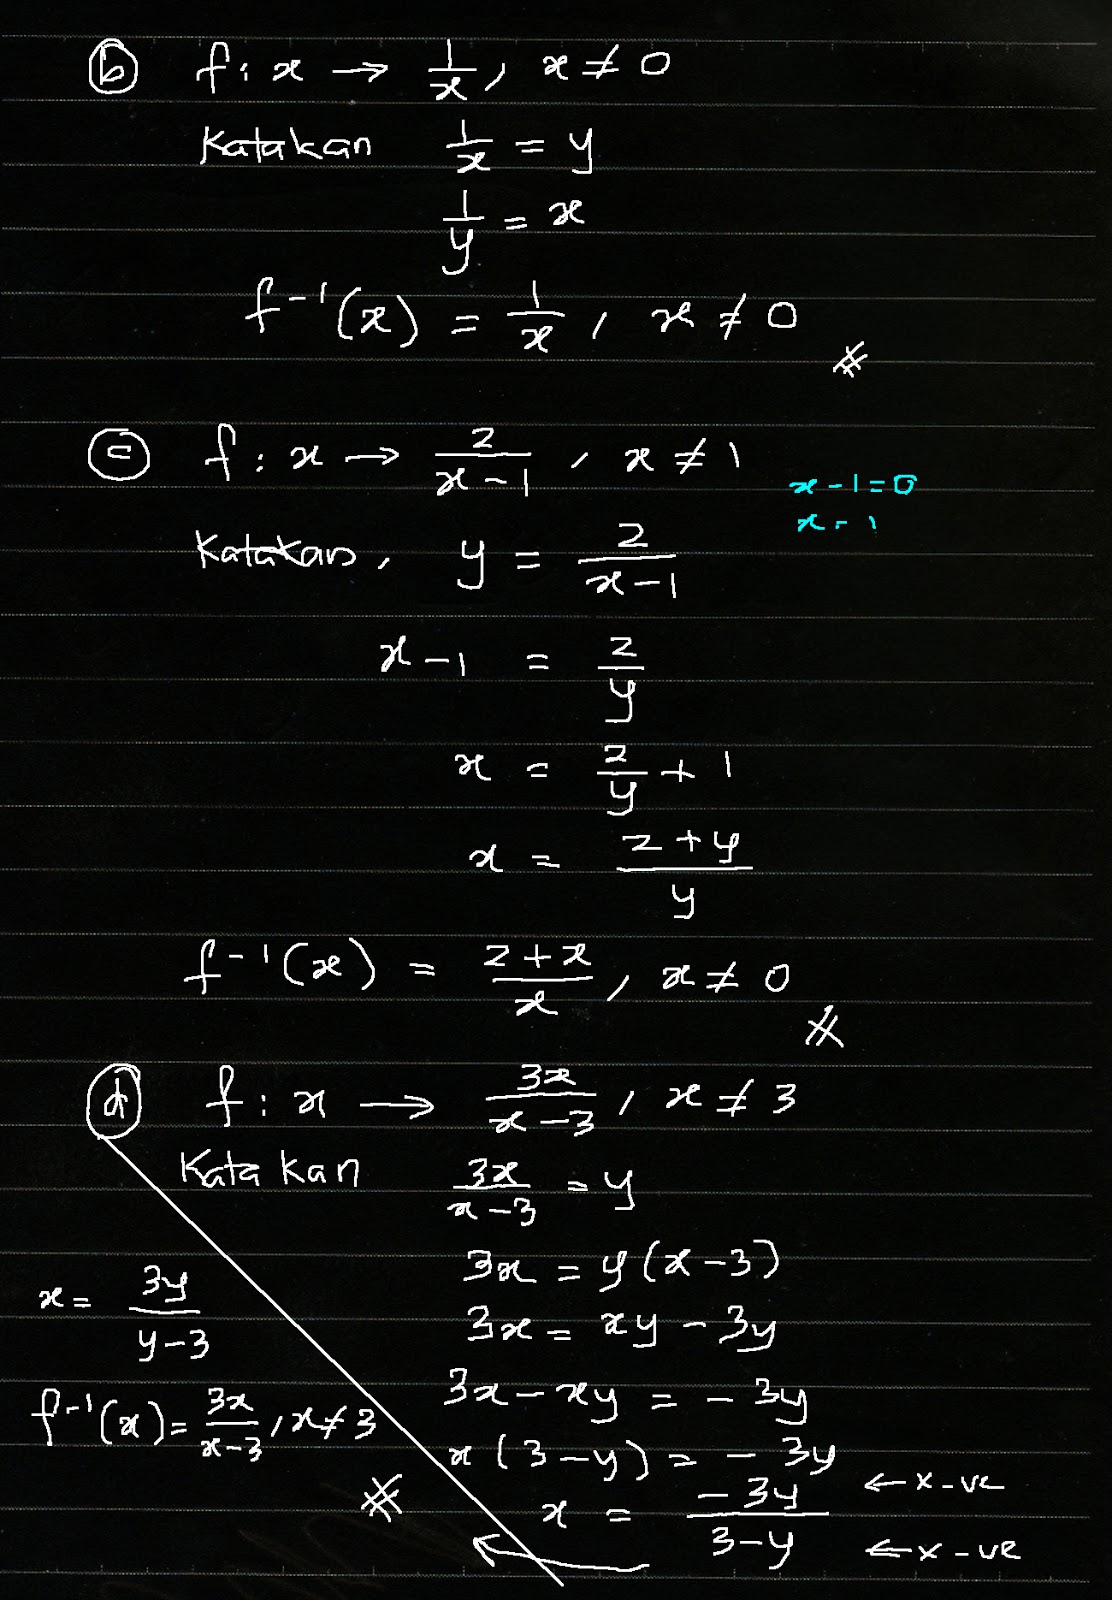 (b) f : x → 1/x , x ≠ 0
Katakan 1/x = y
1/y = x
f⁻¹(x) = 1/x , x ≠ 0
(c) f : x → 2/(x-1) , x ≠ 1
x - 1 = 0
x = 1
Katakan, y = 2/(x-1)
x - 1 = 2/y
x = 2/y + 1
x = (2+y)/y
f⁻¹(x) = (2+x)/x , x ≠ 0
(d) f : x → 3x/(x-3) , x ≠ 3
Katakan 3x/(x-3) = y
3x = y(x-3)
3x = xy - 3y
3x - xy = -3y
x(3-y) = -3y
x = -3y/(3-y)
← x -ve
← x -ve
x = 3y/(y-3)
f⁻¹(x) = 3x/(x-3) , x ≠ 3